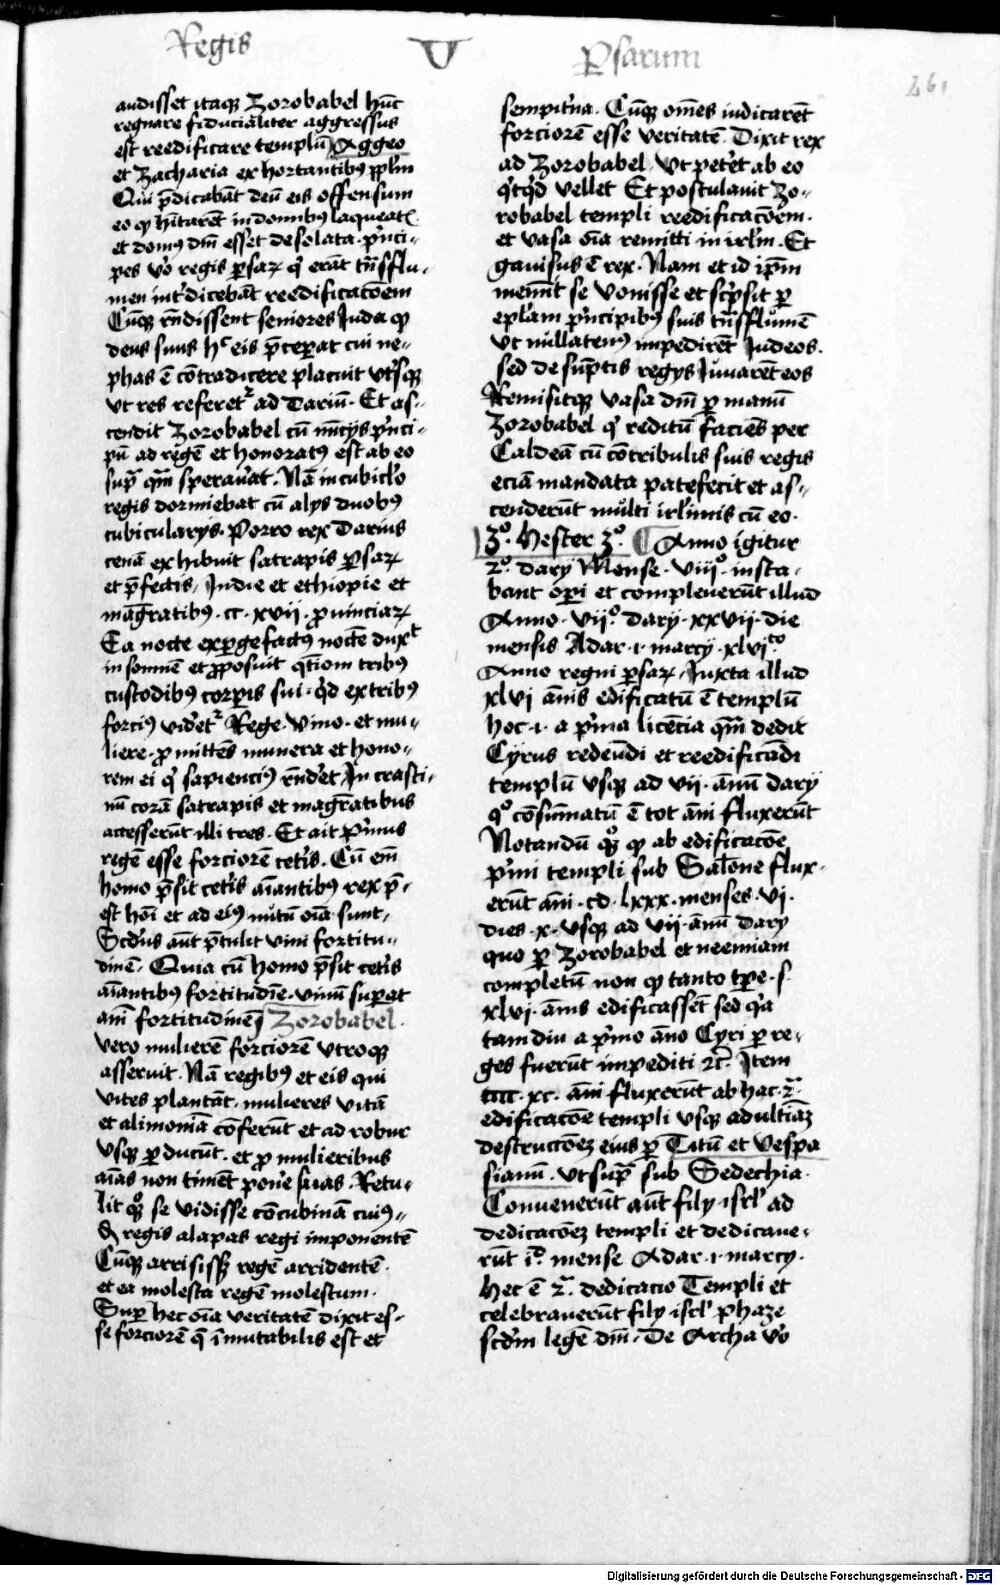 Regis V Psarum
261
audisset itaqꝫ Zorobabel hūc
regnare fiducialiter aggressus
est reedificare templū Aggeo
et Zacharia exhortantibꝰ pplm
Qui p̄dicabāt deū eis offensum
eo ꝙ hītarēt in domibꝰ laqueatꝭ
et domꝰ dm̄ esset desolata. pͥnci-
pes vͦo regis ꝑsaꝝ qͥ erāt tͣnsflu-
men int͛dicebāt reedificacōem
Cūqꝫ rn̄dissent seniores Juda ꝙ
deus suus hͦ eis p̄ceperat cui ne-
phas ē cōtradicere placuit vtͥsqꝫ
vt res referetᷣ ad Dariū. Et as-
cendit Zorobabel cū nūcijs pͥnci-
pū ad regē et honoratꝰ est ab eo
supͣ qm̄ sperauͦat. Nā in cubiclo
regis dormiebat cū alijs duobꝰ
cubicularijs. Porro rex Darius
cenā exhibuit satrapis ꝑsaꝝ
et p̄fectis, Indie et ethiopie et
magr̄atibꝰ .cc. xvii. ꝓuinciaꝝ
Ea nocte exꝑgefactꝰ noctē duxͭ
insomnē et ꝓposuit qͣtiom tribꝰ
custodibꝰ corꝑis sui. qͥd ex tribꝰ
forciꝰ videtᷣ Rege. Vino. et mu-
liere. ꝓmittēs munera et hono-
rem ei qͥ sapienciꝰ rn̄det, In crasti-
nū corā satrapis et magr̄atibus
accesserūt illi tres. Et ait pͥmus
regē esse forciorē cetis. Cū em̄
homo p̄sit cetis aīantibꝰ rex p̄-
est hoī et ad eiꝰ nutū oīa sunt,
Scd̓us aūt p̄tulit vini fortitu-
dinē. Quia cū homo p̄sit cetis
aīantibꝰ fortitudīe. vinū suꝑat
aīm fortitudinē Zorobabel.
vero mulierē forciorē vtroqꝫ
asseruit. Nā regibꝰ et eis qui
vites plantāt. mulieres vitā
et alimoniā cōferūt et ad robur
vsqꝫ ꝑducūt. et ꝓ mulieribus
aīas non timēt ponͤe suas. Retu-
lit qꝫ se vidisse cōcubinā cuiꝰ-
dā regis alapas regi imponentē
Cūqꝫ arrisissꝫ regē arridentē
et ea molesta regē molestum.
Suꝑ hec oīa veritatē dixit es-
se forciorē q̄ īmutabilis est et
sempitͥna. Cūqꝫ om̄es iudicarēt
forciorē esse veritatē. Dixit rex
ad Zorobabel. vt petet ab eo
qͥcqͥd vellet Et postulauit Zo-
robabel templi reedificacōem.
et vasa oīa remitti in irlm̄. Et
gauisus ē rex. Nam et id ip̄m
memīt se vouisse et scͥpsit ꝑ
eplam pͥncipibꝰ suis tͣnsflumē
vt nullatenꝰ impedirēt Judeos.
sed de sūptis regijs Juuarēt eos
Remisitqꝫ vasa dm̄ ꝑ manū
Zorobabel qͥ reditū faciēs per
Caldeā cū cōtribulis suis regis
eciā mandata patefecit et as-
cenderūt multi irlimis cū eo.
3ͦ. hester 3ͦ. Anno igitur
2ͦ. darij Mense. viiiͦ. insta-
bant oꝑi et compleuerūt illud
Anno. viiͦ. darij. xxvii. die
mensis Adar .i. marcij. xlviͭͦ
Anno regni ꝑsaꝝ. Juxta illud
xlvi annis edificatū ē templū
hoc. i. a pͥma licēcia qm̄ dedit
Cyrus redeundi et reedificādi
templū vsqꝫ ad vii. annū darij
qͦ cōsummatū ē tot āni fluxerūt
Notandū qꝫ ꝙ ab edificacōe
pͥmi templi sub Salone flux-
erūt āni .cd. lxxx. menses. vi.
dies. x. vsqꝫ ad vii. annū darij
quo ꝑ Zorobabel et neemiam
completū non ꝙ tanto tꝑe. s.
xlvi. annis edificassēt sed qͣ
tam diu a pͥmo āno Cyri ꝑ re-
ges fuerūt impediti ⁊c̄. Item
cccc. xc. āni fluxerūt ab hac. 2ͣ.
edificacōe templi vsqꝫ ad ultīaꝫ
destruccōeꝫ eius ꝑ Titū et Vespa
sianū. vt supͣ sub Sedechia.
Conuenerūt aūt filij isrl ad
dedicacōeꝫ templi et dedicaue-
rūt iͦ. mense Adar. i. marcij.
Hec ē 2ͣ. dedicacio Templi et
celebrauerūt filij isrl phaze
scd̓m legē dm̄. De Archa vͦo
Digitalisierung gefördert durch die Deutsche Forschungsgemeinschaft - DFG